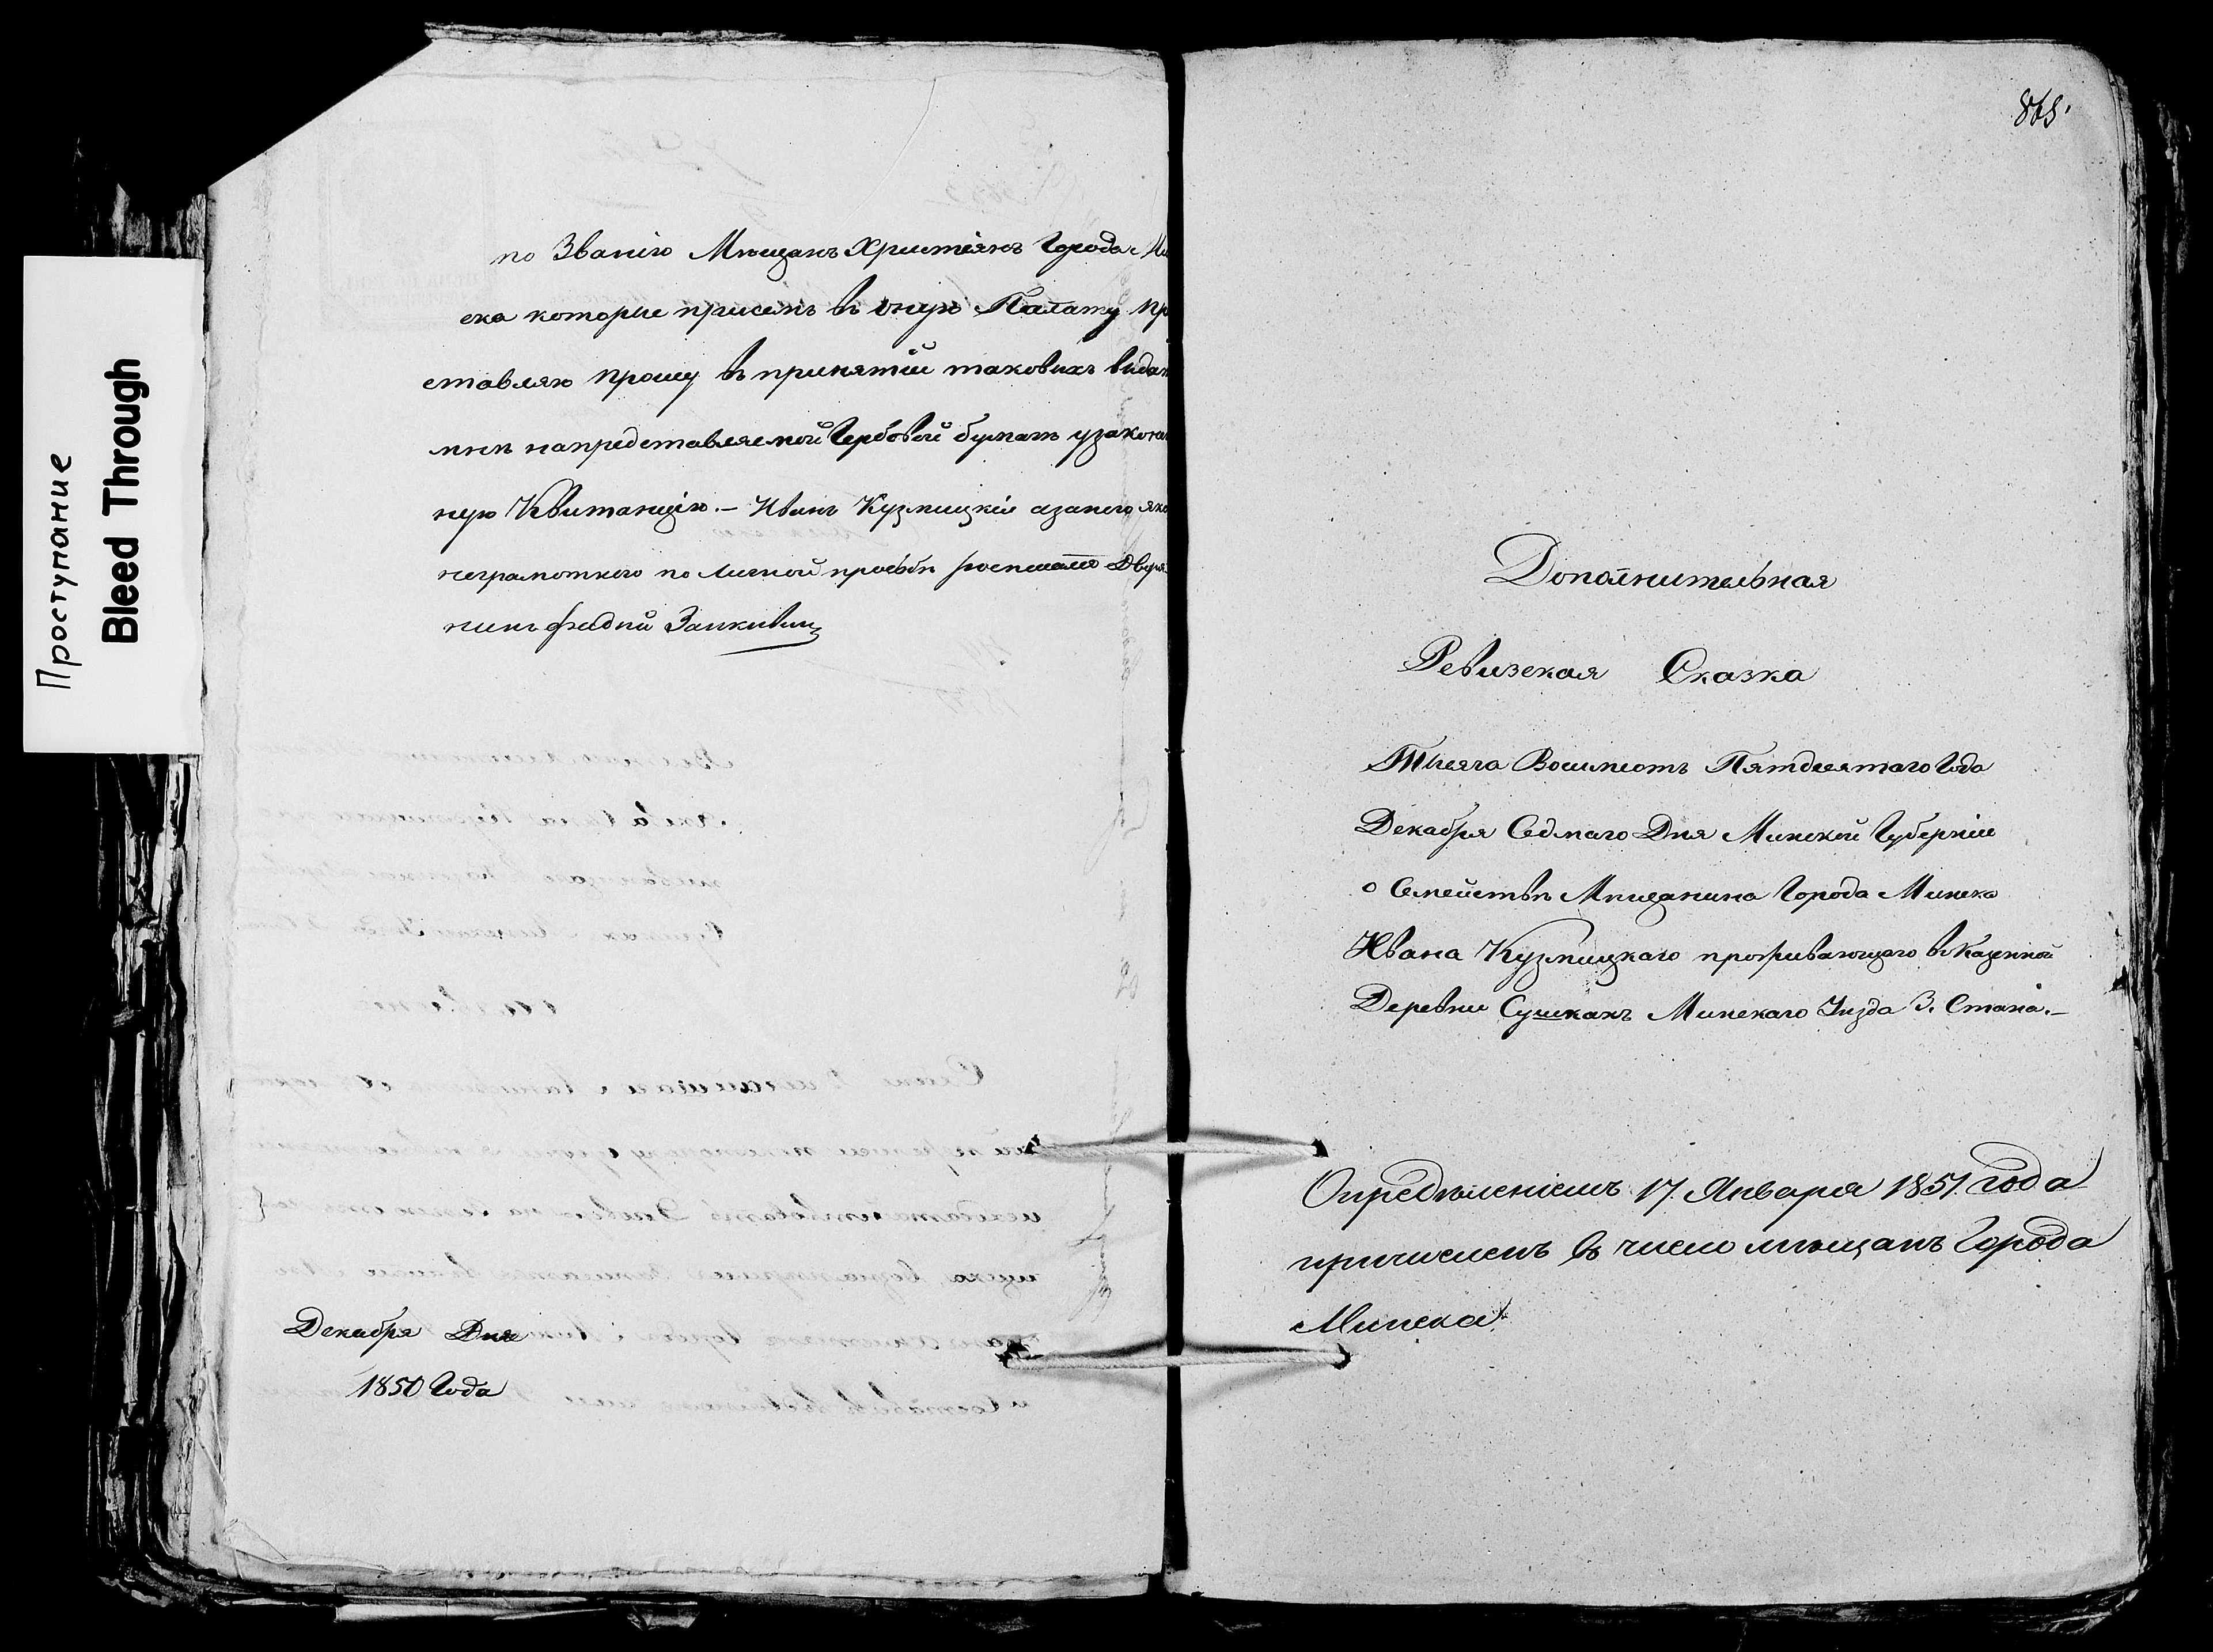 Проступание
Bleed Through
по Званію Мѣщанъ Христіянъ Города Ми
ска которіе присемъ въ оную Палату пр
ставляю прошу въ принятіи таковихъ видат
мнѣ напредставляемой Гербовой бумагѣ узакона
ную Квитанцію. — Иванъ Кузмицкій азанего яко
неграмотного по личной прозбѣ росписался Дворя-
нинъ Занкевичъ
Декабря Дня
1850 Года
868.
Дополнительная
Ревизская Сказка
Тысяча Восимсотъ Пятдесятаго Года
Декабря Седмаго Дня Минской Губерніи
о Семействѣ Мѣщанина Города Минска
Ивана Кузмицкаго проживающаго въ Казенной
Деревни Сушкахъ Минскаго Уѣзда 3. Стана. —
Опредѣленіемъ 17 Января 1851 года
причисленъ въ число мѣщанъ Города
Минска.